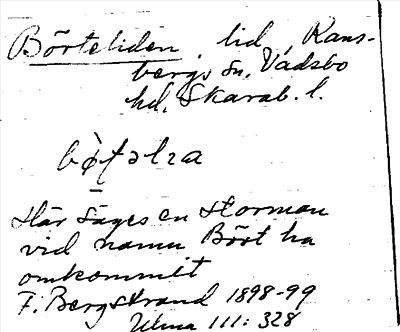 Börteliden, lid, Rans-
bergs sn. Vadsbo
hd. Skarab. l.
Här säges en storman
vid namn Bört ha
omkommit
F. Bergstrand 1898-99
Ulma 111: 328